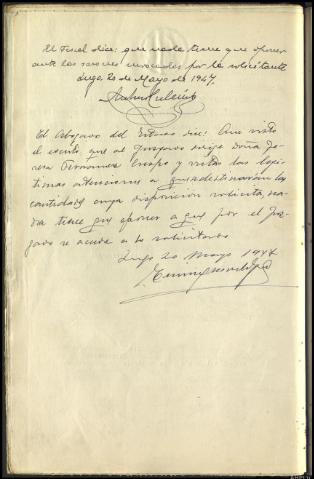 El Fiscal dice: que nada tiene que oponer
ante las razones invocadas por la solicitante
Lugo 20 de Mayo de 1947.
El Abogado del Estado dice: Que visto
el escrito que al Juzgado dirige Doña Te-
resa Fernández Crespo y vistas las legí-
timas atenciones a que destinarán las
cantidades cuya disposición solicita, na-
da tiene que oponer a que por el Juz-
gado se acceda a lo solicitado.
Lugo 20 Mayo 1947